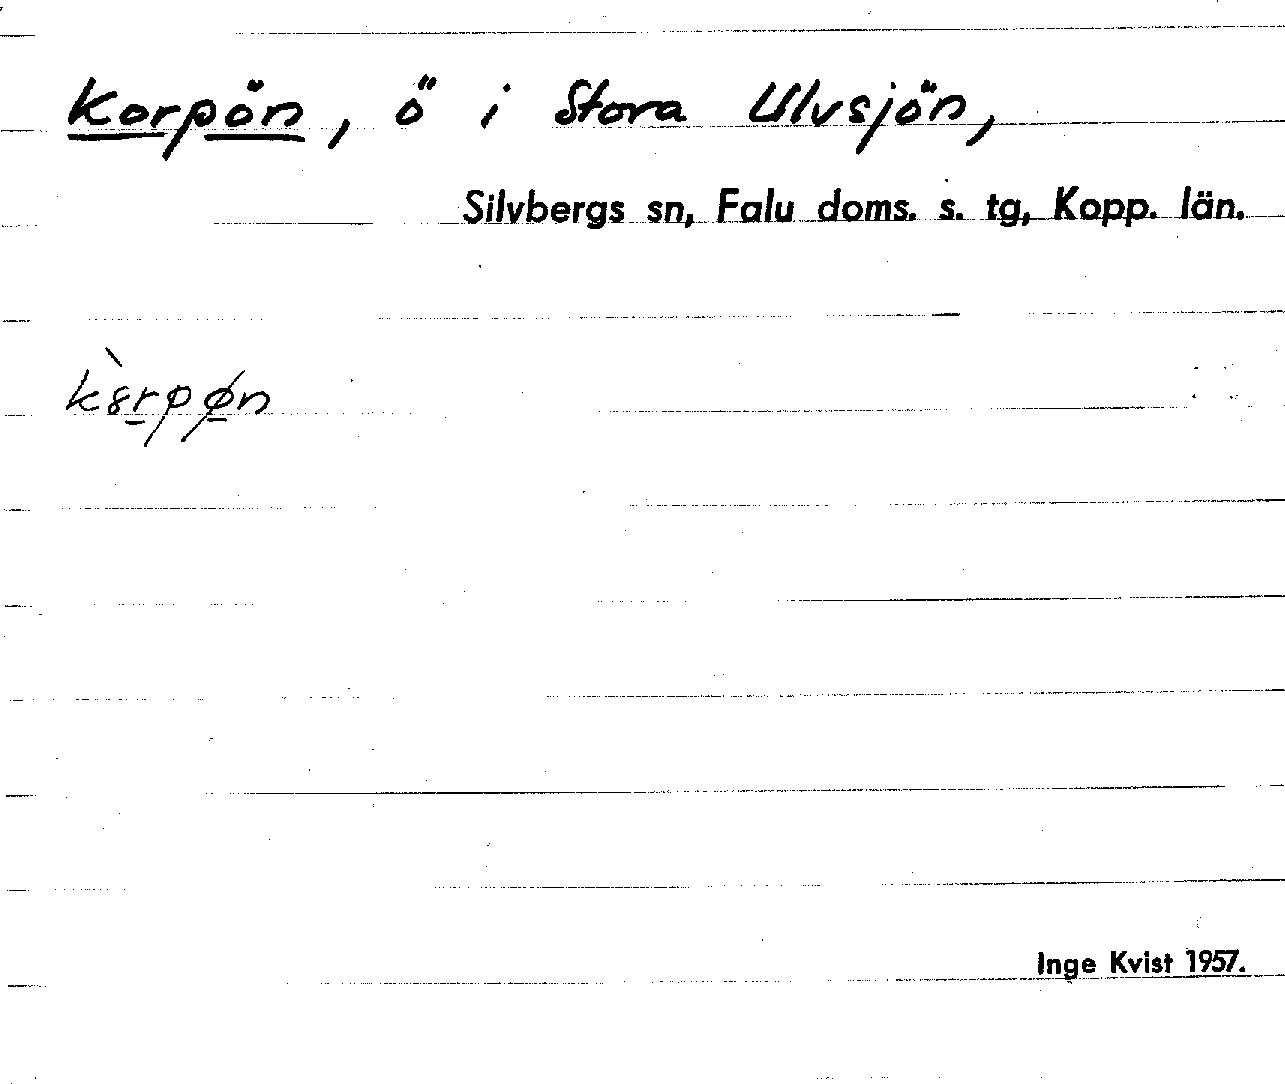 Korpön, ö i Stora Ulvsjön,
Silvbergs sn, Falu doms. s. tg, Kopp. län.
k8̀rpøn
Inge Kvist 1957.